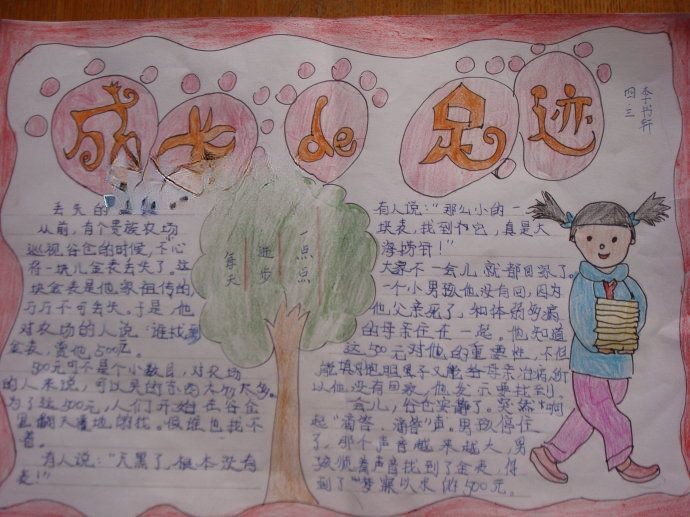 成长de足迹
李书轩
四.三
丢失的
从前,有个贵族农场
巡视谷仓的时候,不心
将一块儿金表丢失了。这
块金表是他家祖传的,
万万不可丢失。于是,他
对农场的人说:谁找到
金表,赏他500元。
500元可不是个小数目,对农场
的人来说,可以买的东西太多太多。
为了这500元,人们开始在谷仓
里翻天覆地的找。但谁也找不
着。
有人说:“天黑了,根本没有
表!”
每天
进步
一点点
有人说:“那么小的一
块表,找到它,真是大
海捞针!”
大家不一会儿就都回家了。
一个小男孩他没有回,因为
他父亲死了,和体弱多病
的母亲住在一起。他知道
这500元对他的重要性,不但
能填饱肚子又能给母亲治病,所
以他没有回家,他发示要找到。
会儿,谷仓安静了。突然响
起“滴答、滴答”声。男孩停住
了。那个声音越来越大,男
孩顺着声音找到了金表,得
到了“梦寐以求”的500元。